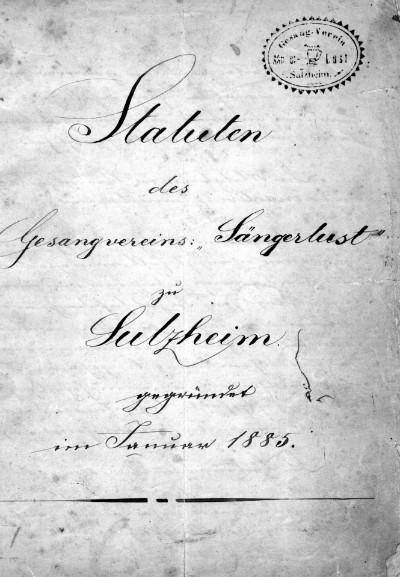 Gesang-Verein
Sänger-Lust
Sulzheim.
Statuten
des
Gesangvereins: „Sängerlust"
zu
Sulzheim.
gegründet
im Januar 1885.